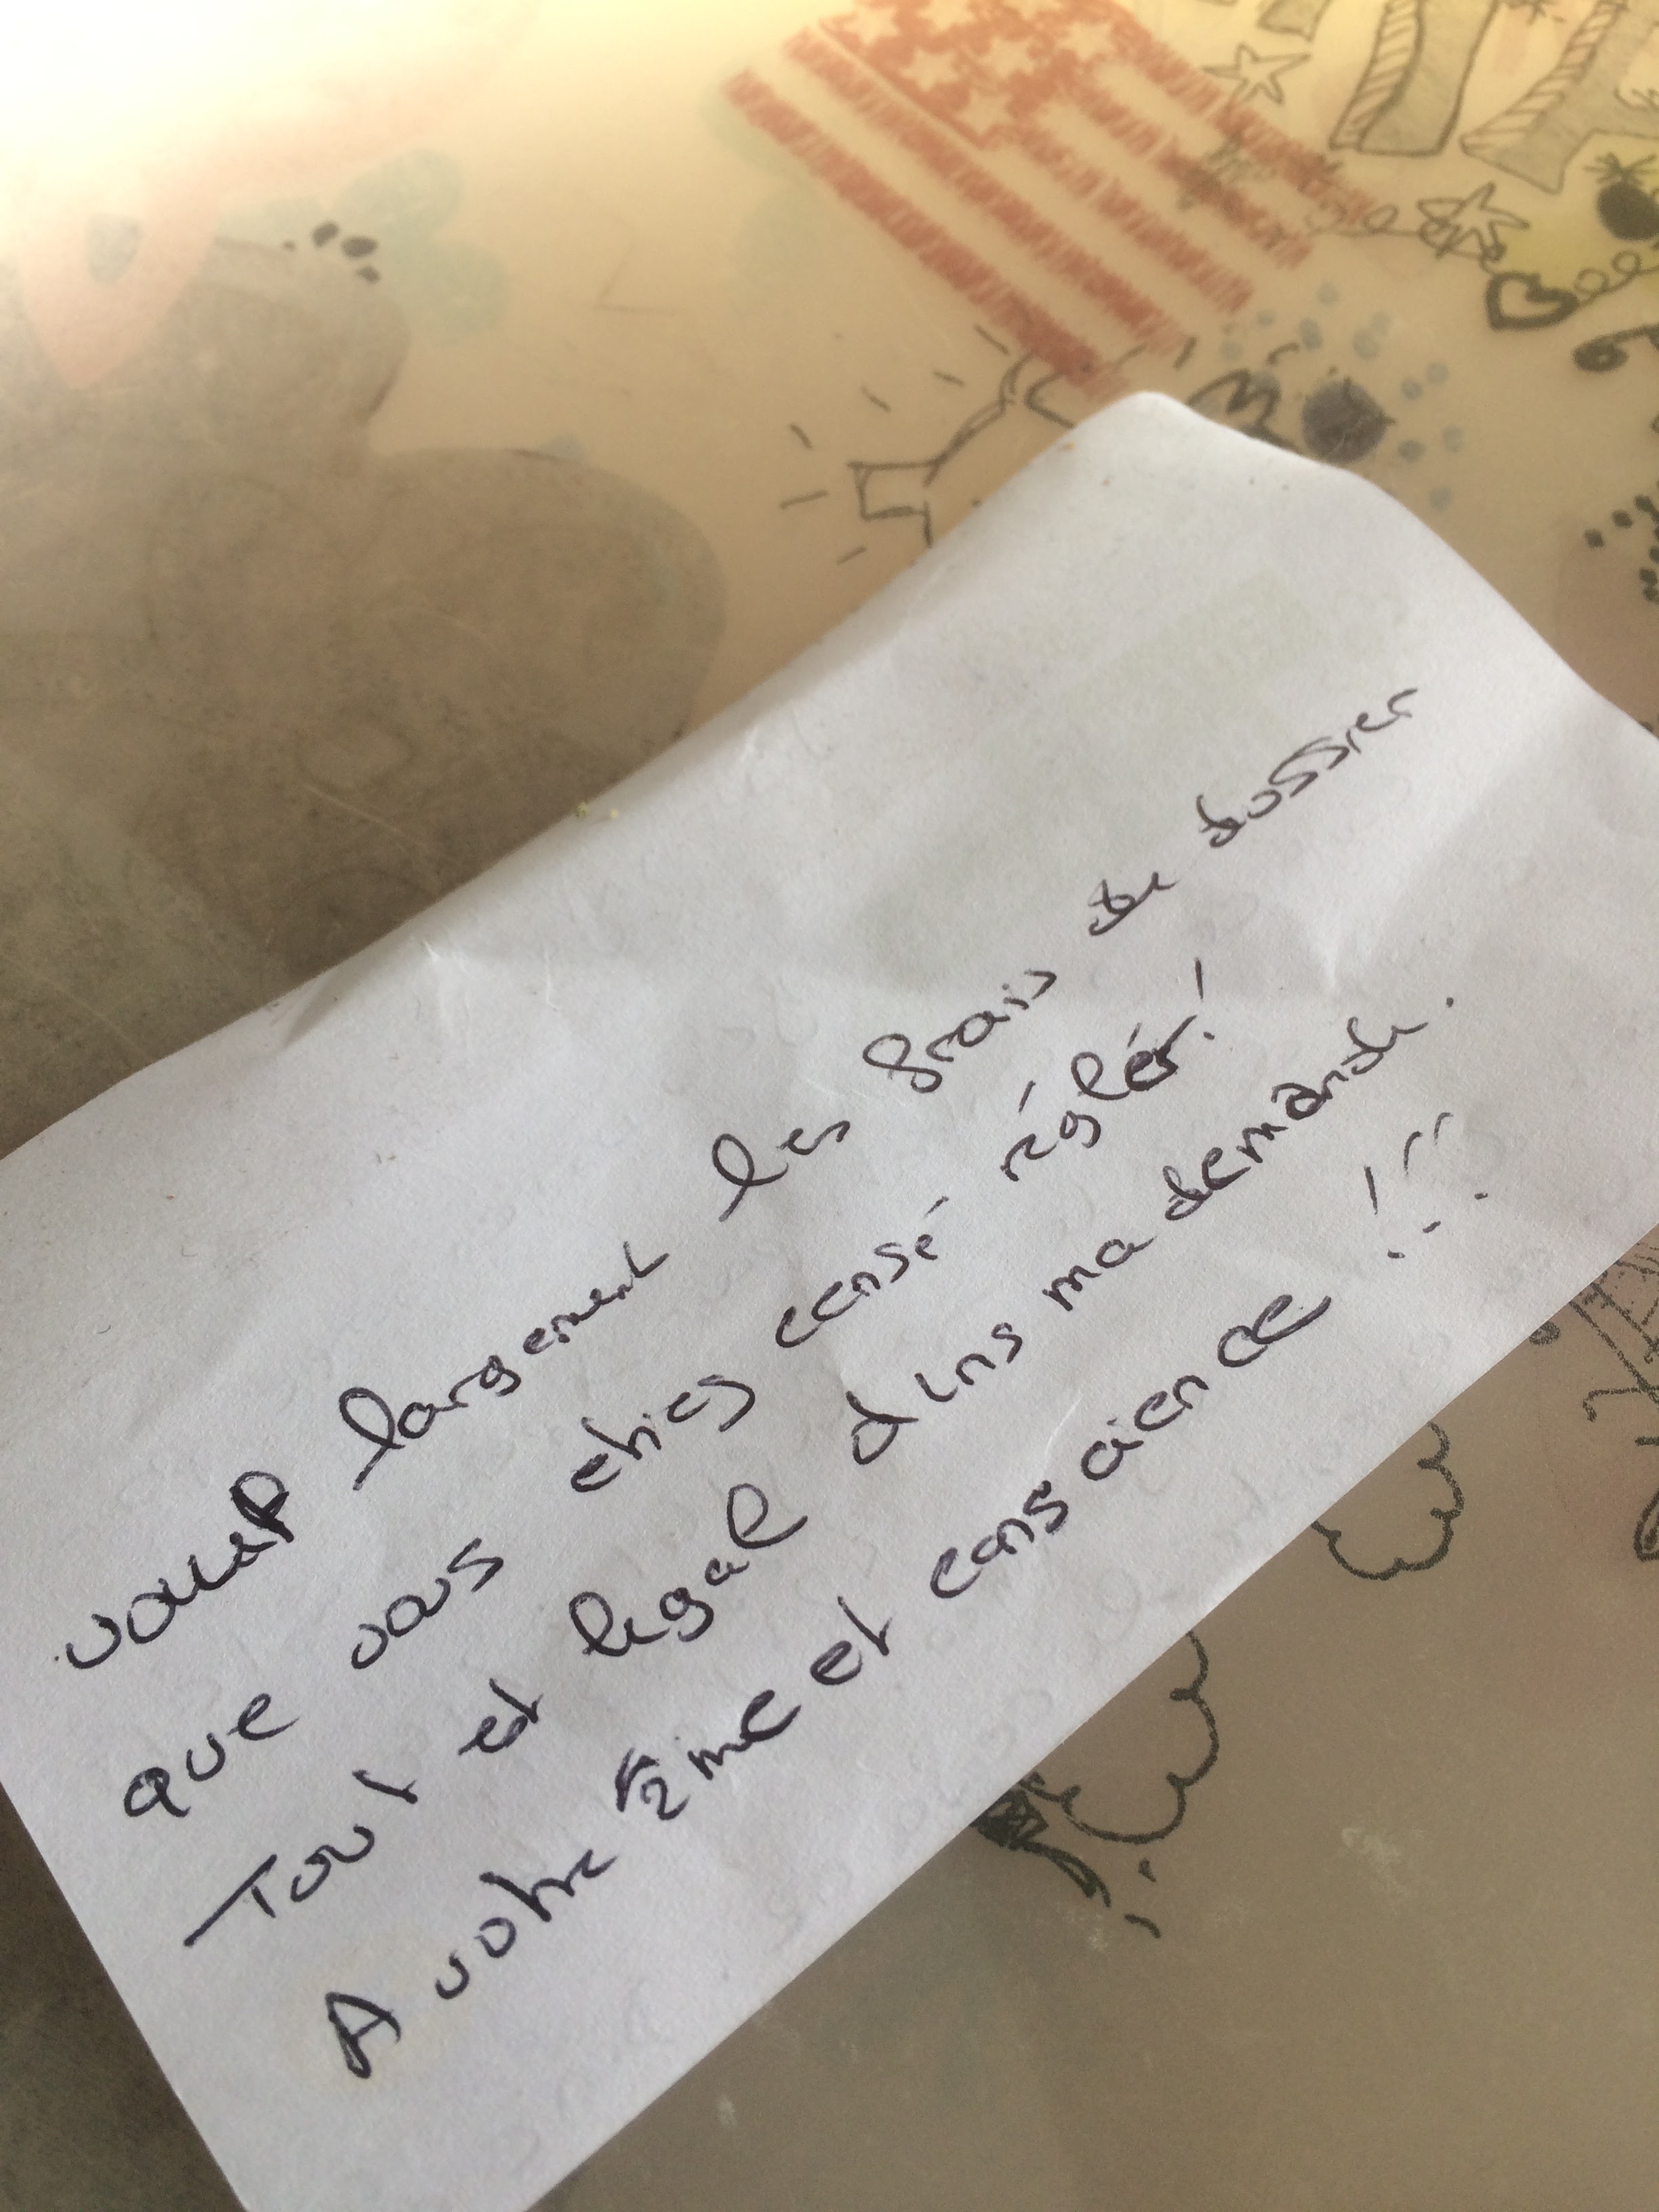 vaut largement les frais de dossier
que vous etiez censé régler!
Tout est légal dans ma demande.
A votre âme et conscience !!!